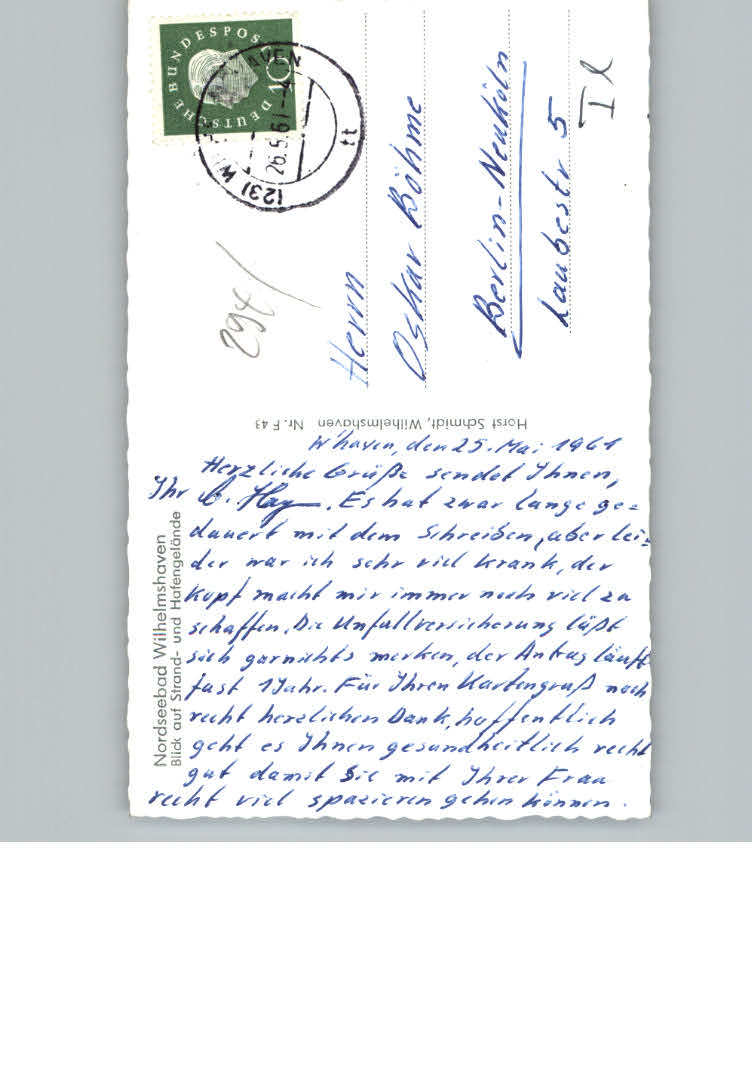 DEUTSCHE BUNDESPOST
10
(23) WILHELMSHAVEN
26.5.61
tt
Herrn
Oskar Böhme
Berlin-Neuköln
Laubestr 5
I l
Horst Schmidt, Wilhelmshaven Nr. F 43
Nordseebad Wilhelmshaven
Blick auf Strand- und Hafengelände
W'haven, den 25. Mai 1961
Herzliche Grüße sendet Ihnen,
Ihr Hay. Es hat zwar lange ge=
dauert mit dem Schreiben, aber lei=
der war ich sehr viel krank, der
Kopf macht mir immer noch viel zu
schaffen. Die Unfallversicherung läßt
sich garnichts merken, der Antrag läuft
fast 1 Jahr. Für Ihren Kartengruß noch
recht herzlichen Dank, hoffentlich
geht es Ihnen gesundheitlich recht
gut damit Sie mit Ihrer Frau
recht viel spazieren gehen können.